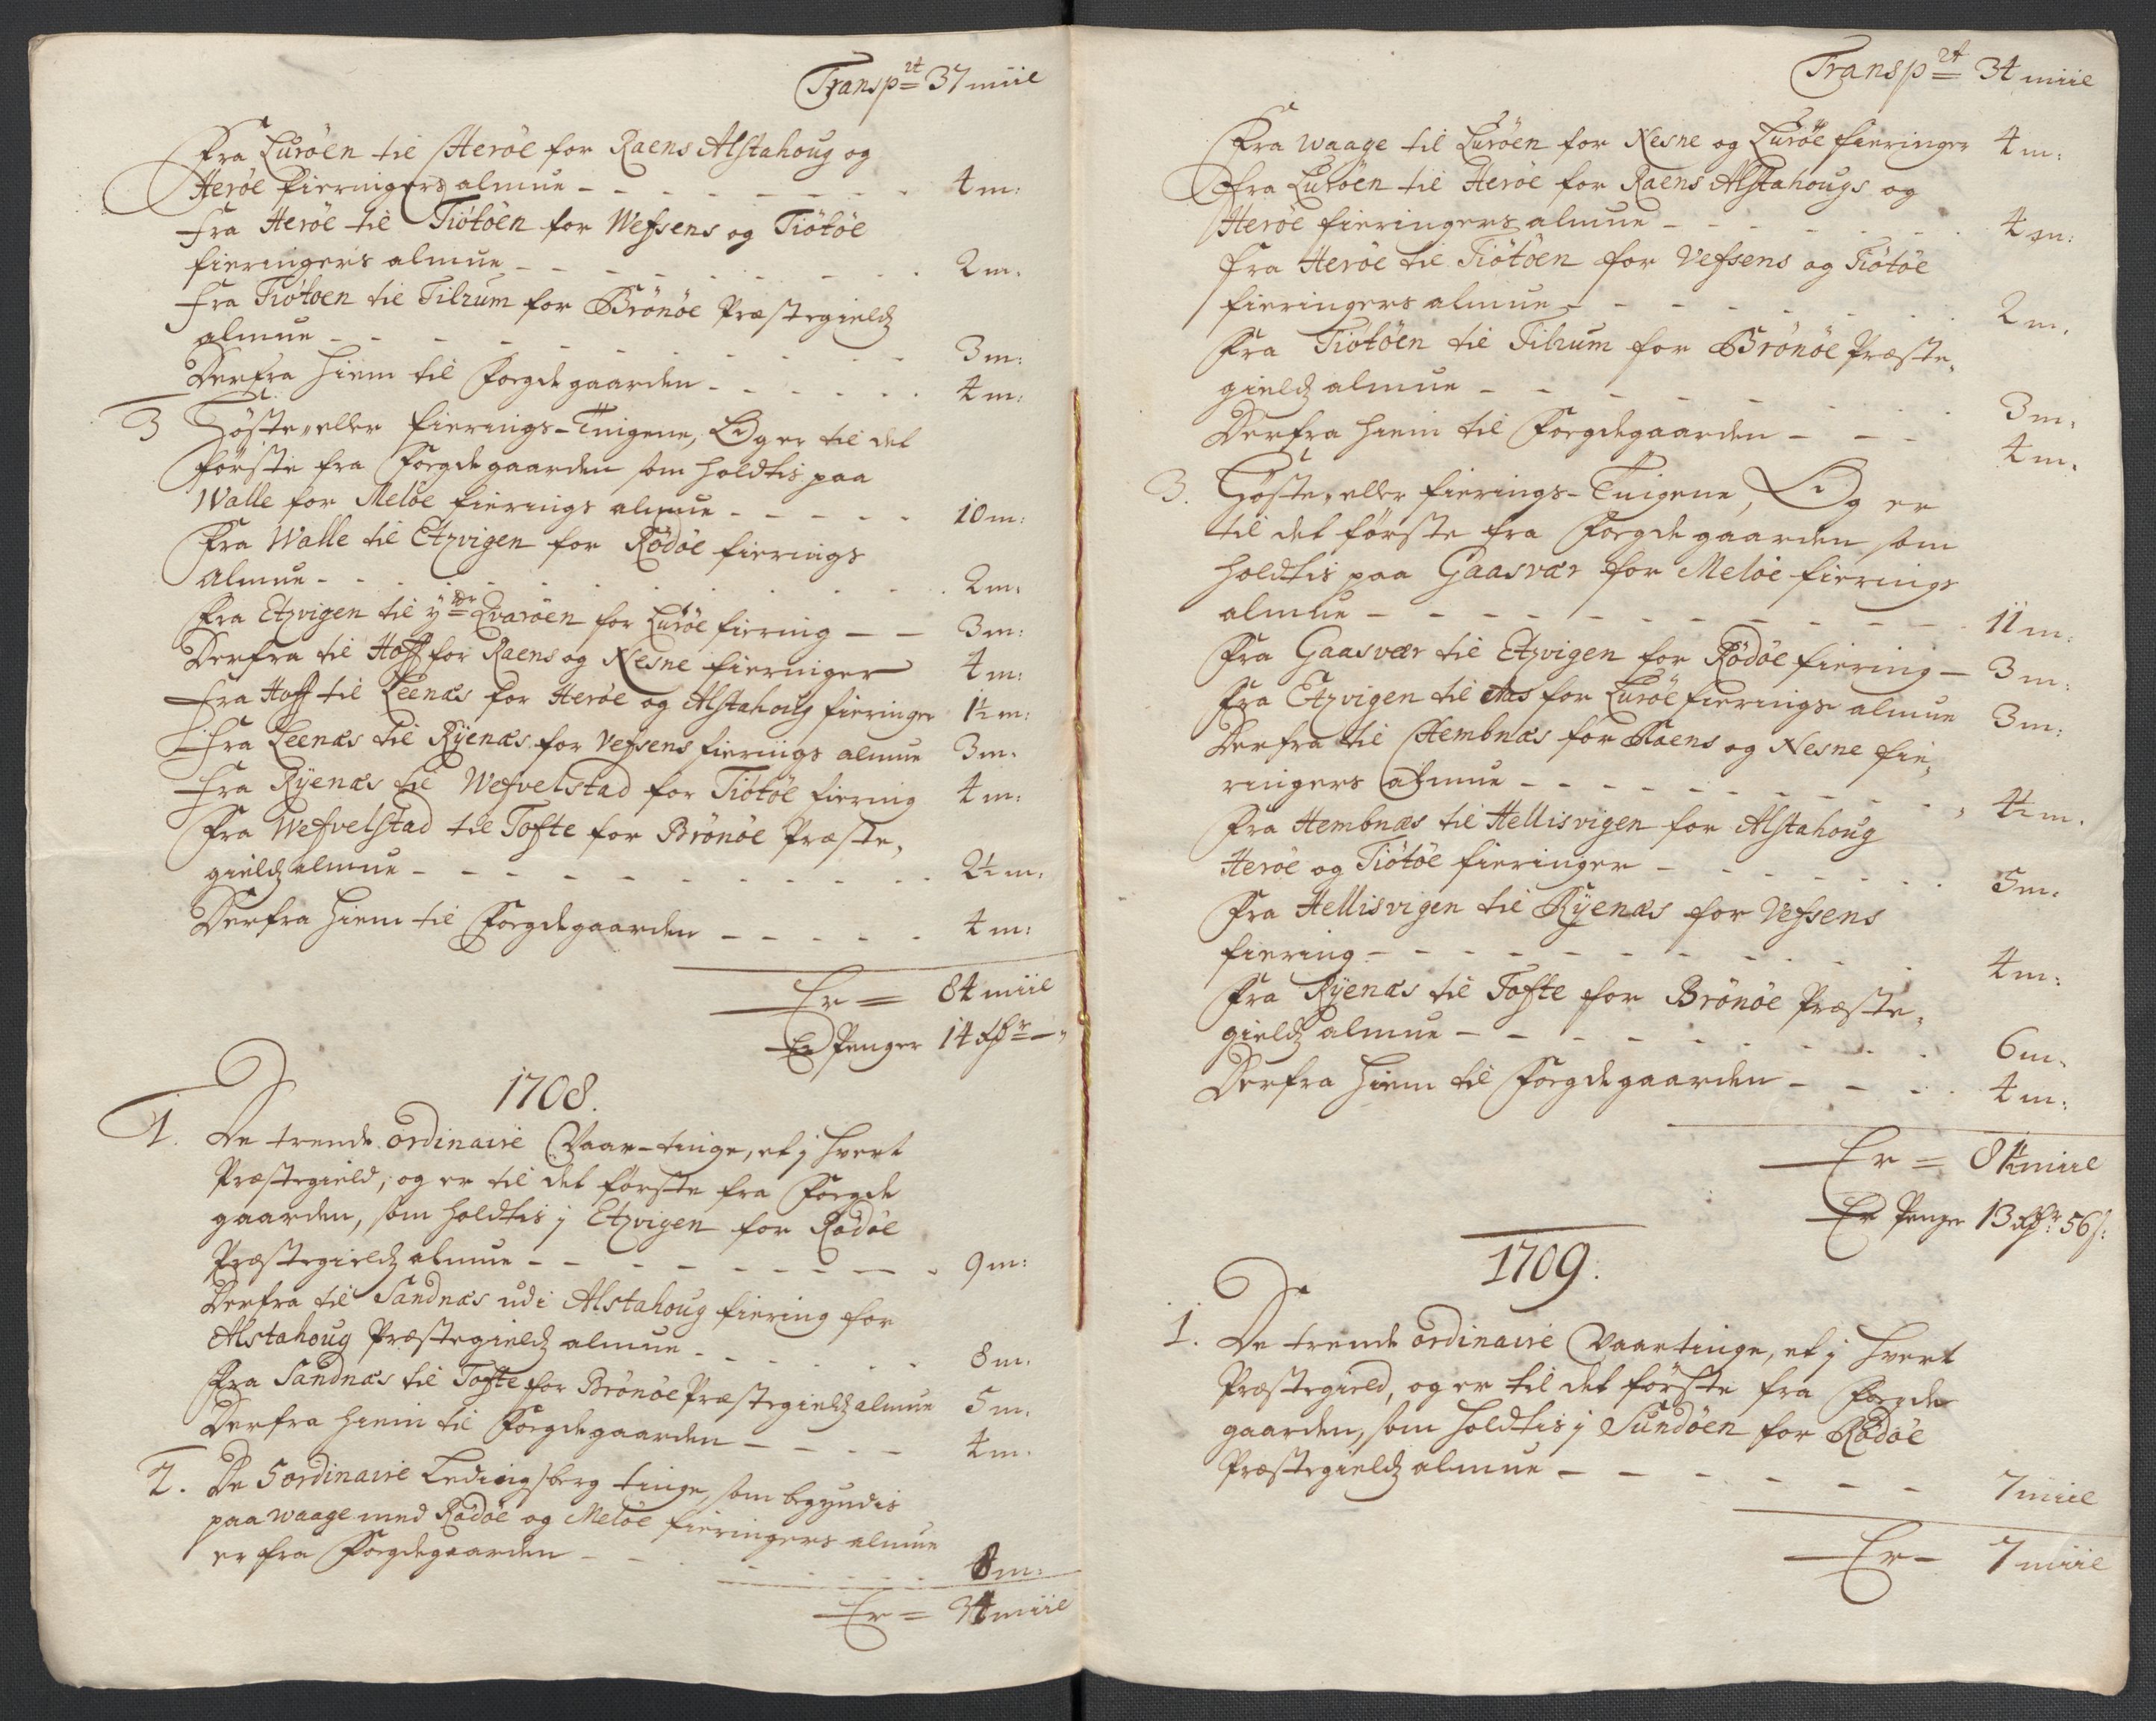 Transp.rt 37 miil
Fra Lurøen til Herøe for Raens Alstahoug og
Herøe fieringers almue - - - - - - 4 m:
Fra Herøe til Tiøtøen for Wefsens og Tiøtøe
fieringers almue - - - - - - 2 m.
Fra Tiøtøen til Tilrum for Brønøe Præstegieldz
almue - - - - - - 3 m:
Derfra hiem til Foegdegaarden - - - - 4 m:
3 Høste, eller fierings-Tingene, Og er til det
første fra Foegdegaarden som holdtis paa
Walle for Meløe fierings almue - - - - 10 m:
Fra Walle til Etzvigen for Rødøe fierings
Almue - - - - - - 2 m:
Fra Etzvigen til ÿdr Qvarøen for Lurøe fiering - - 3 m:
Derfra til Hoff for Raens og Nesne fieringer 4 m:
Fra Hoff til Leenæs for Herøe og Alstahoug fieringer 1½ m:
Fra Leenæs til Rÿenæs for Vefsens fierings almue 3 m.
Fra Rÿenæs til Wefvelstad for Tiøtøe fiering 4 m:
Fra Wefvelstad til Tofte for Brønøe Præste,
gieldz almue - - - - - - 2½ m:
Derfra hiem til Foegdegaarden - - - - 4 m:
Er = 84 miil
Er Penger 14 dr - "
1708.
1. De trende ordinaire Vaar-tinge, et j hvert
Præstegield, og er til det første fra Foegde
gaarden, som holdtis j Etzvigen for Rødøe
Præstegieldz almue - - - - - - 9 m:
Derfra til Sandnæs udi Alstahoug fiering for
Alstahoug Præstegieldz almue - - - - 8 m.
Fra Sandnæs til Tofte for Brønøe Præstegieldz almue 5 m.
Derfra hiem til Foegdegaarden - - - - 4 m.
2. De 5 ordinaire Ledingsberg tinge, som begyndis
paa Waage med Rødøe og Meløe fieringers almue
er fra Foegdegaarden - - - - - - 8 m:
Er = 34 miil
Transp.rt 34 miil
Fra Waage til Lurøen for Nesne og Lurøe fieringer 4 m:
Fra Lurøen til Herøe for Raens Alstahougs og
Herøe fieringers almue - - - - - - 4 m:
Fra Herøe til Tiøtøen for Vefsens og Tiøtøe
fieringers almue - - - - - - 2 m.
Fra Tiøtøen til Tilrum for Brønøe Præste,
gieldz almue - - - - - - 3 m.
Derfra hiem til Foegdegaarden - - - 4 m.
3. Høste, eller fierings-Tingene, Og er
til det første fra Foegdegaarden som
holdtis paa Gaasvær for Meløe fierings
almue - - - - - - 11 m:
Fra Gaasvær til Etzvigen for Rødøe fiering - 3 m:
Fra Etzvigen til Aas for Lurøe fierings almue 3 m:
Derfra til Hembnæs for Raens og Nesne fie,
ringers almue - - - - - - 4½ m.
Fra Hembnæs til Hellisvigen for Alstahoug
Herøe og Tiøtøe fieringer - - - - - - 5 m:
Fra Hellisvigen til Rÿenæs for Vefsens
fiering - - - - - - 4 m:
Fra Rÿenæs til Tofte for Brønøe Præste,
gieldz almue - - - - - - 6 m.
Derfra hiem til Foegdegaarden - - - - 4 m:
Er = 81½ miil
Er Penge 13 dr 56 s:
1709.
1. De trende ordinaire Vaartinge, et j hvert
Præstegield, og er til det første fra Foegde
gaarden, som holdtis j Sundøen for Rødøe
Præstegieldz almue - - - - - - 7 miil
Er - 7 miil